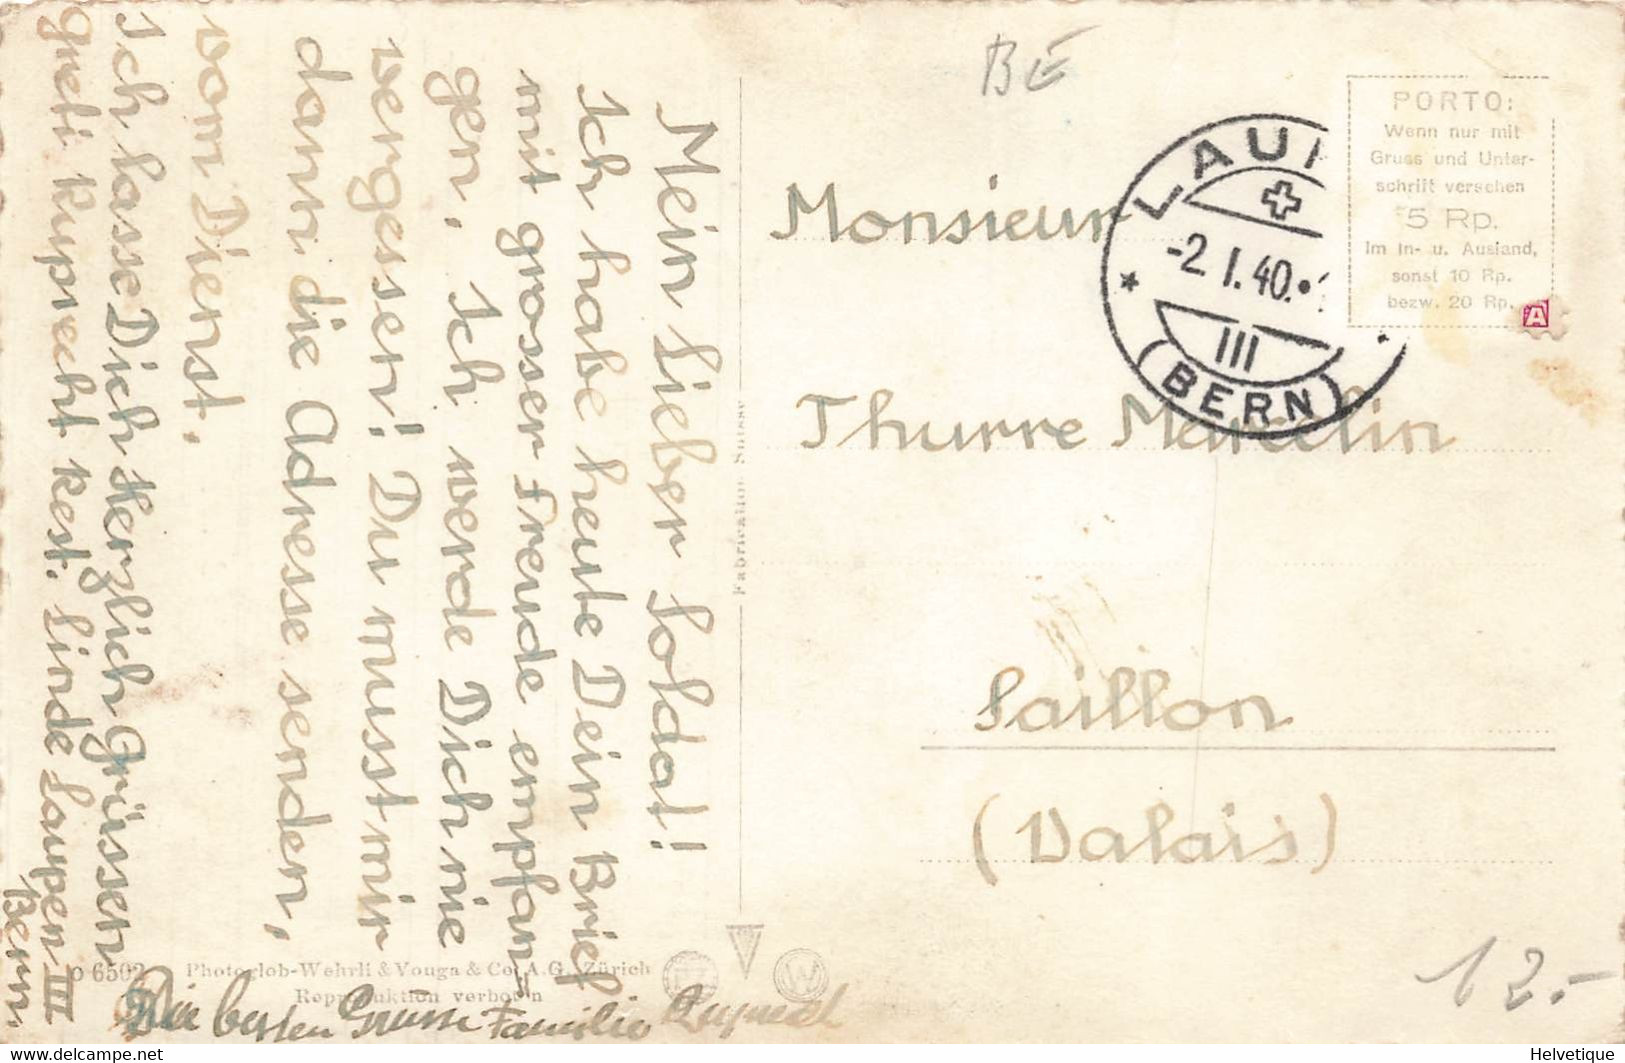 Mein Lieber Soldat!
Ich habe heute Dein Brief
mit grosser Freude empfan-
gen. Ich werde Dich nie
vergessen! Du musst mir
dann die Adresse senden,
vom Dienst.
Ich lasse Dich Herzlich Grüssen
greti Ruprecht Rest. Linde Laupen III
Bern.
Die besten Grüsse Familie
BE
LAUP
-2.I.40.
III
(BERN)
PORTO:
Wenn nur mit
Gruss und Unter-
schrift versehen
5 Rp.
Im In- u. Ausland,
sonst 10 Rp.
bezw. 20 Rp.
A
Monsieur
Thurre Marcelin
Saillon
(Valais)
12.-
Fabrication Suisse
6502
Photoglob-Wehrli & Vouga & Co. A.G. Zürich
Reproduktion verboten
W
www.delcampe.net
Helvetique